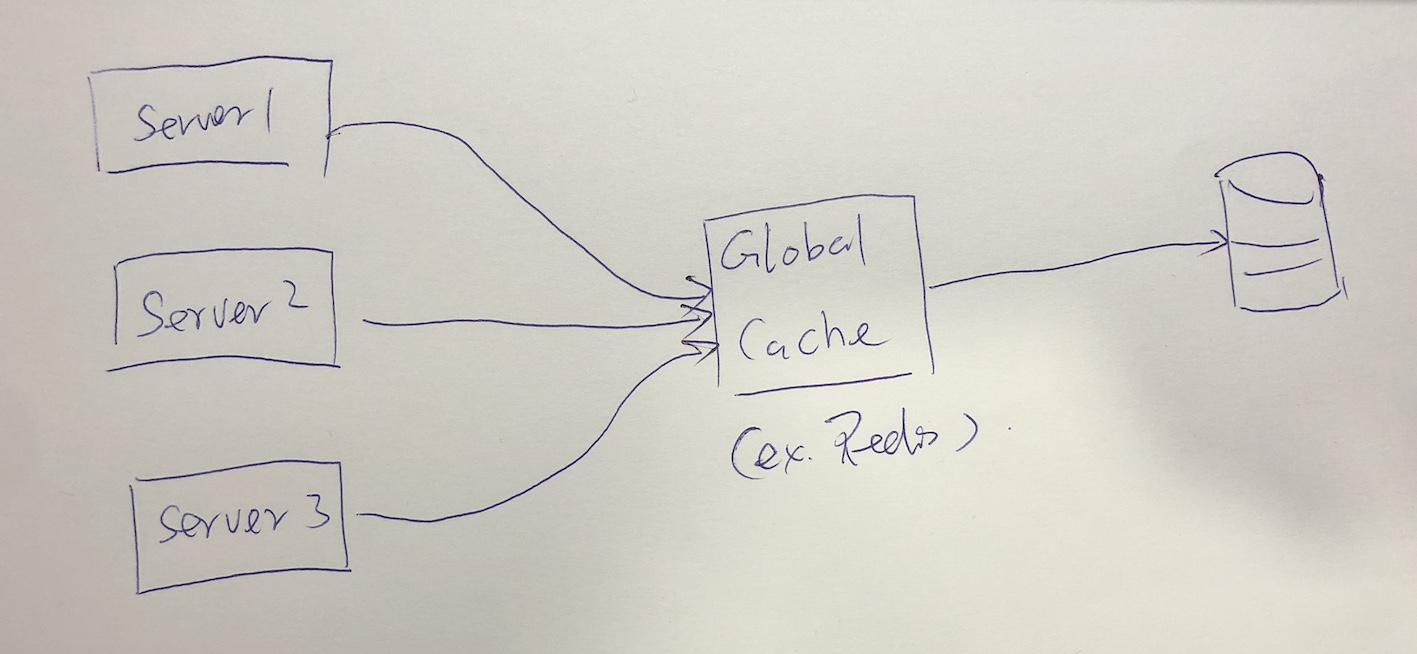 Server 1
Server 2
Server 3
Global
Cache
(ex. Redis)